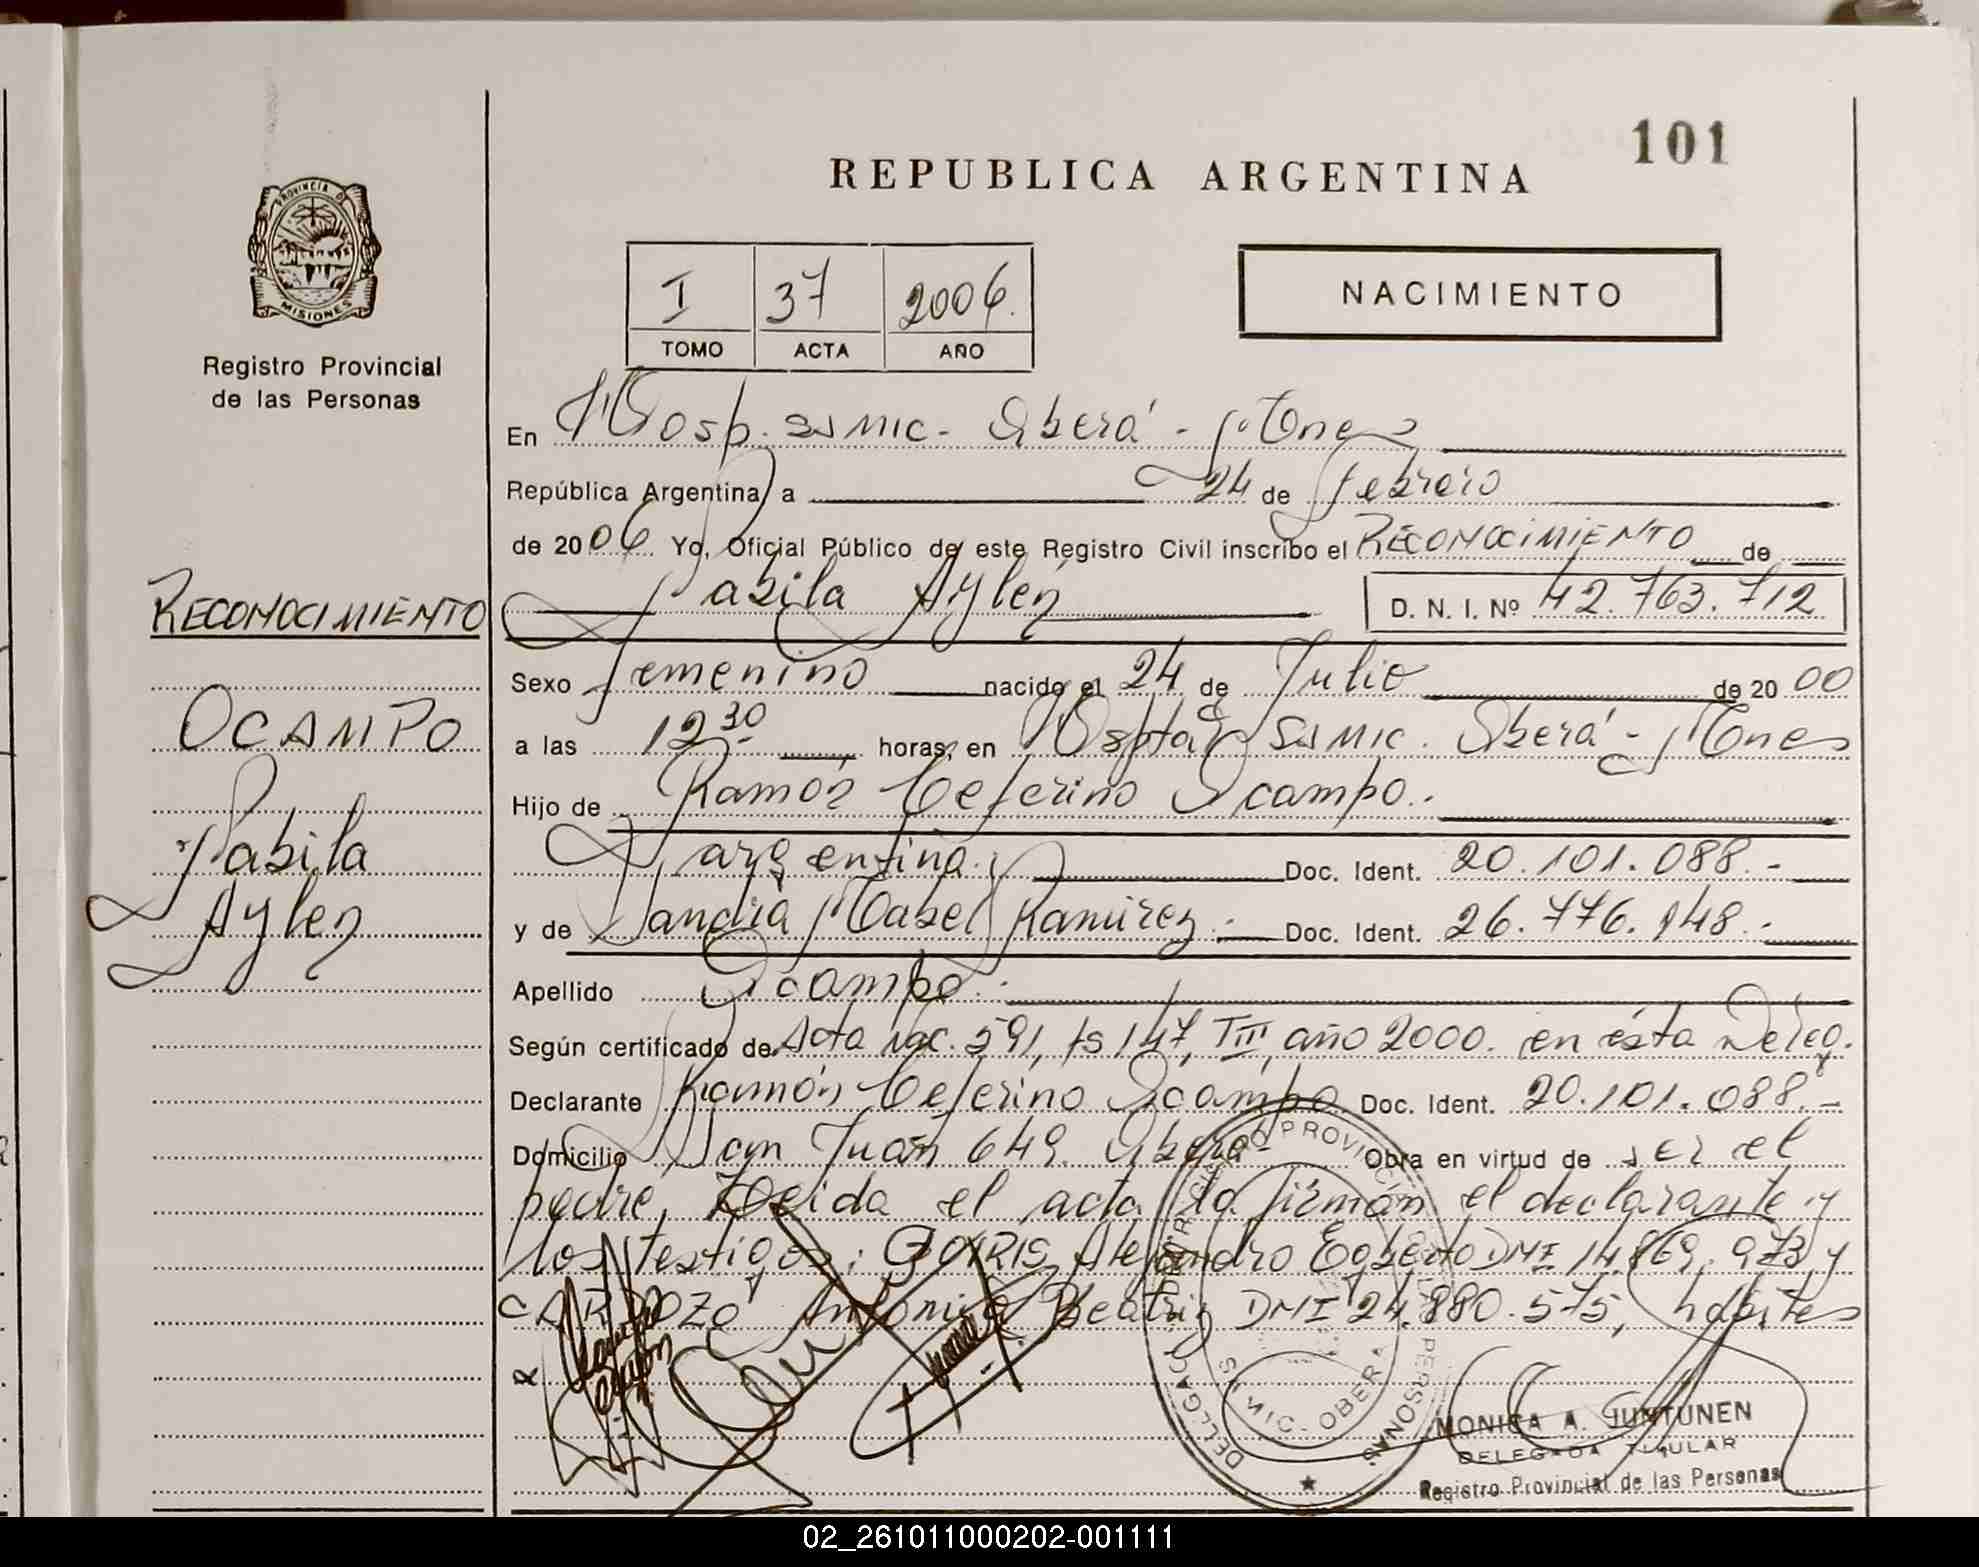 101
REPUBLICA ARGENTINA
PROVINCIA DE
MISIONES
Registro Provincial
de las Personas
I 37 2006.
TOMO ACTA AÑO
NACIMIENTO
En Hosp. SAMIC. Oberá - Mones
República Argentina, a 24 de febrero
de 2006 Yo, Oficial Público de este Registro Civil inscribo el RECONOCIMIENTO de
Yabila Aylen D. N. I. Nº 42.763.712
Sexo femenino nacido el 24 de Julio de 2000
a las 12 30 horas, en Hosptal SAMIC. Oberá - Mones
Hijo de Ramón Ceferino Ocampo.
argentina. Doc. Ident. 20.101.088.-
y de Sandra Mabel Ramirez Doc. Ident. 26.776.148.-
Apellido Ocampo.
Según certificado de Acta nac. 591, fs 147, TIII, año 2000. en ésta Deleg.
Declarante Ramón Ceferino Ocampo Doc. Ident. 20.101.088.-
Domicilio San Juan 649. Oberá Obra en virtud de ser el
padre, Leida el acta la firman el declarante y
los testigos: Alejandro Egberto DNI 14.869.973 y
CARDOZO Antonia Beatriz DNI 24.880.575, habites
RECONOCIMIENTO
OCAMPO
Yabila
Aylen
REGISTRO PROVINCIAL DE LAS PERSONAS
SAMIC - OBERA
MONICA A. JUNTUNEN
DELEGADA TITULAR
Registro Provincial de las Personas
02_261011000202-001111